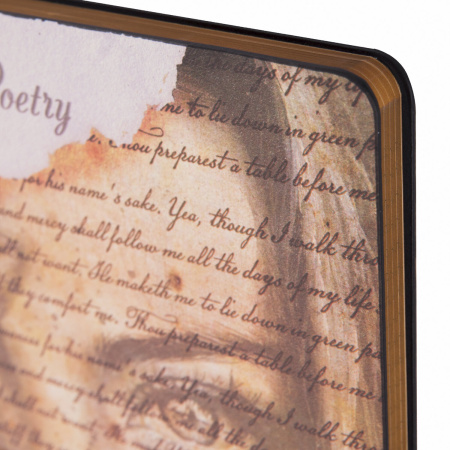 Poetry
the days of my
me to lie down in green
Thou preparest a table before me
for his name's sake. Yea, though I walk
and mercy shall follow me all the days of my life
not want. He maketh me to lie down in green
they comfort me. Thou preparest a table before me
for his name's sake. Yea, though I walk
and mercy shall all the days of my
shall not want.